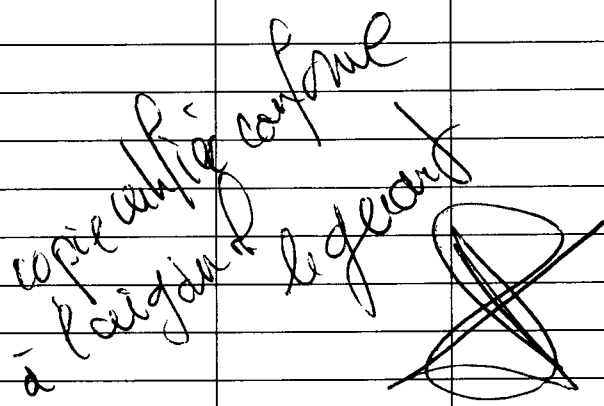 copie certifiée conforme
à l'original le gérant